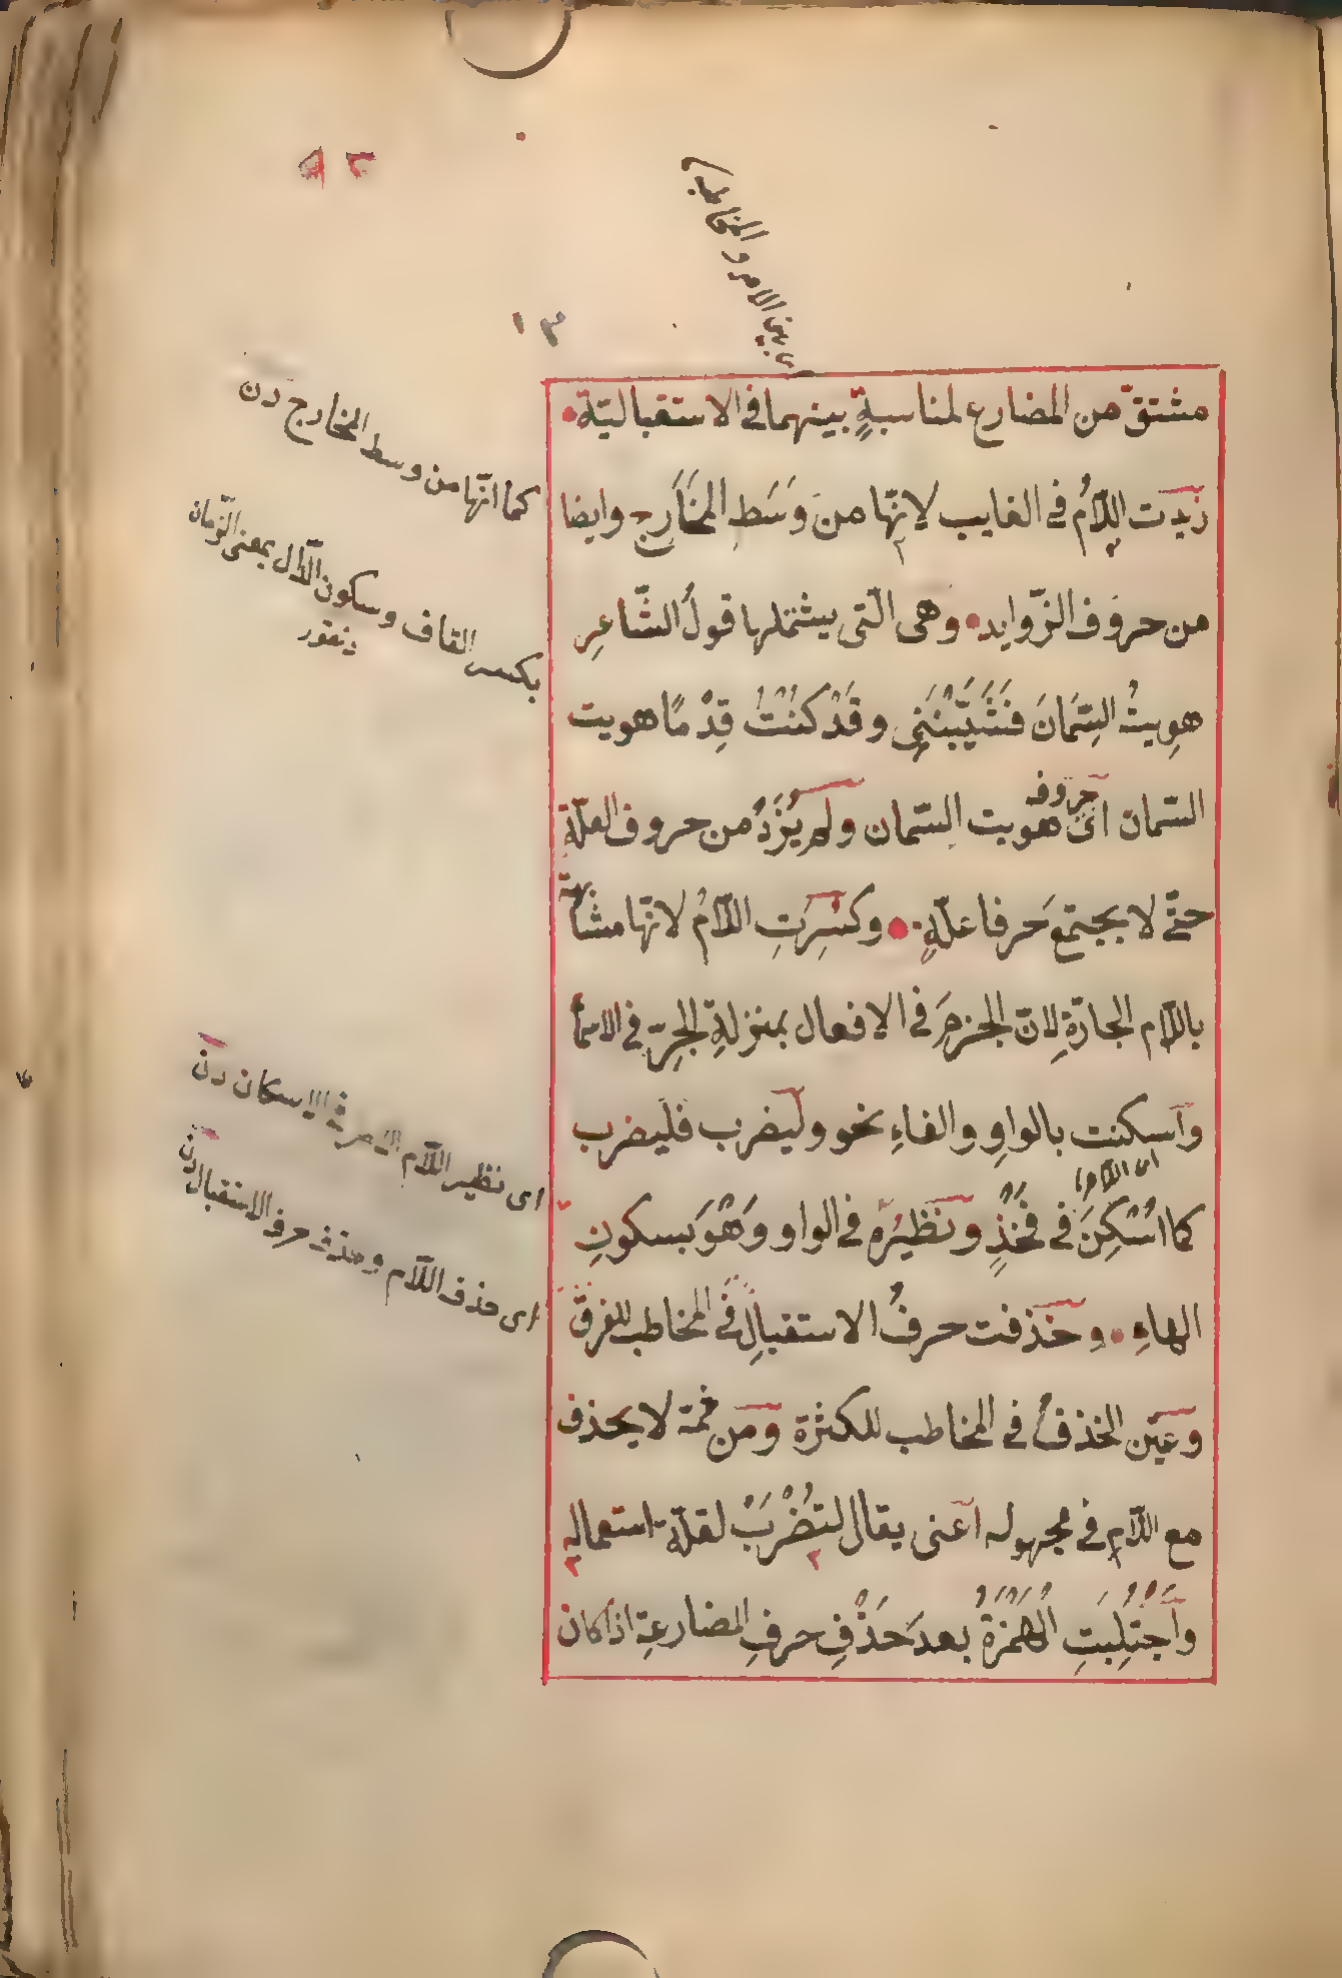 ٩٢
بين الامر والمخاطب
١٣
مشتقّ من المضارع لمناسبةٍ بينهما فى الاستقباليّة
زيدت اللّامُ فى الغايب لانّها منَ وَسَطِ المخَارِج وايضا
من حروف الزّوايد وهى الّتى يشتملها قولُ الشّاعرِ
هوِيتُ السِّمَانَ فَشَيَّبْنَنِى وقَدْ كُنْتُ قِدْمًا هويت
السّمان اى حروف هويت السّمان ولم يُزَدْ من حروف العلّةِ
حتّى لا يجتمعَ حرفا علّةٍ وكُسِرَتِ اللّامُ لانّها مشابهة
باللّام الجارّةِ لانّ الجزمَ فى الافعال بمنزلةِ الجرِّ فى الاسما
واسكنت بالواوِ والفاءِ نحو وليضرب فليضرب
كما اُسْكِنَ فى فَخْذٍ ونظيرُه فى الواو وَهْوَ بسكونِ
اى اللام
الهاءِ وحذفت حرفُ الاستقبالِ فى المخاطب للفرق
وعيّن الحذفُ فى المخاطب للكثرة ومن ثمة لا يحذف
مع اللّامِ فى مجهوله اعنى يقال لتُضْرَبْ لقلّةِ استعمالِه
واجْتُلِبَتِ الْهَمْزَةُ بعدَ حَذْفِ حرفِ المضارعةِ اذا كان
كما انّها من وسط المخارج
بكسر القاف وسكون الدّال بمعنى الزّمان
اى نظير اللّام الامر فى الاسكان
اى حذف اللّام وحذف حرف الاستقبال